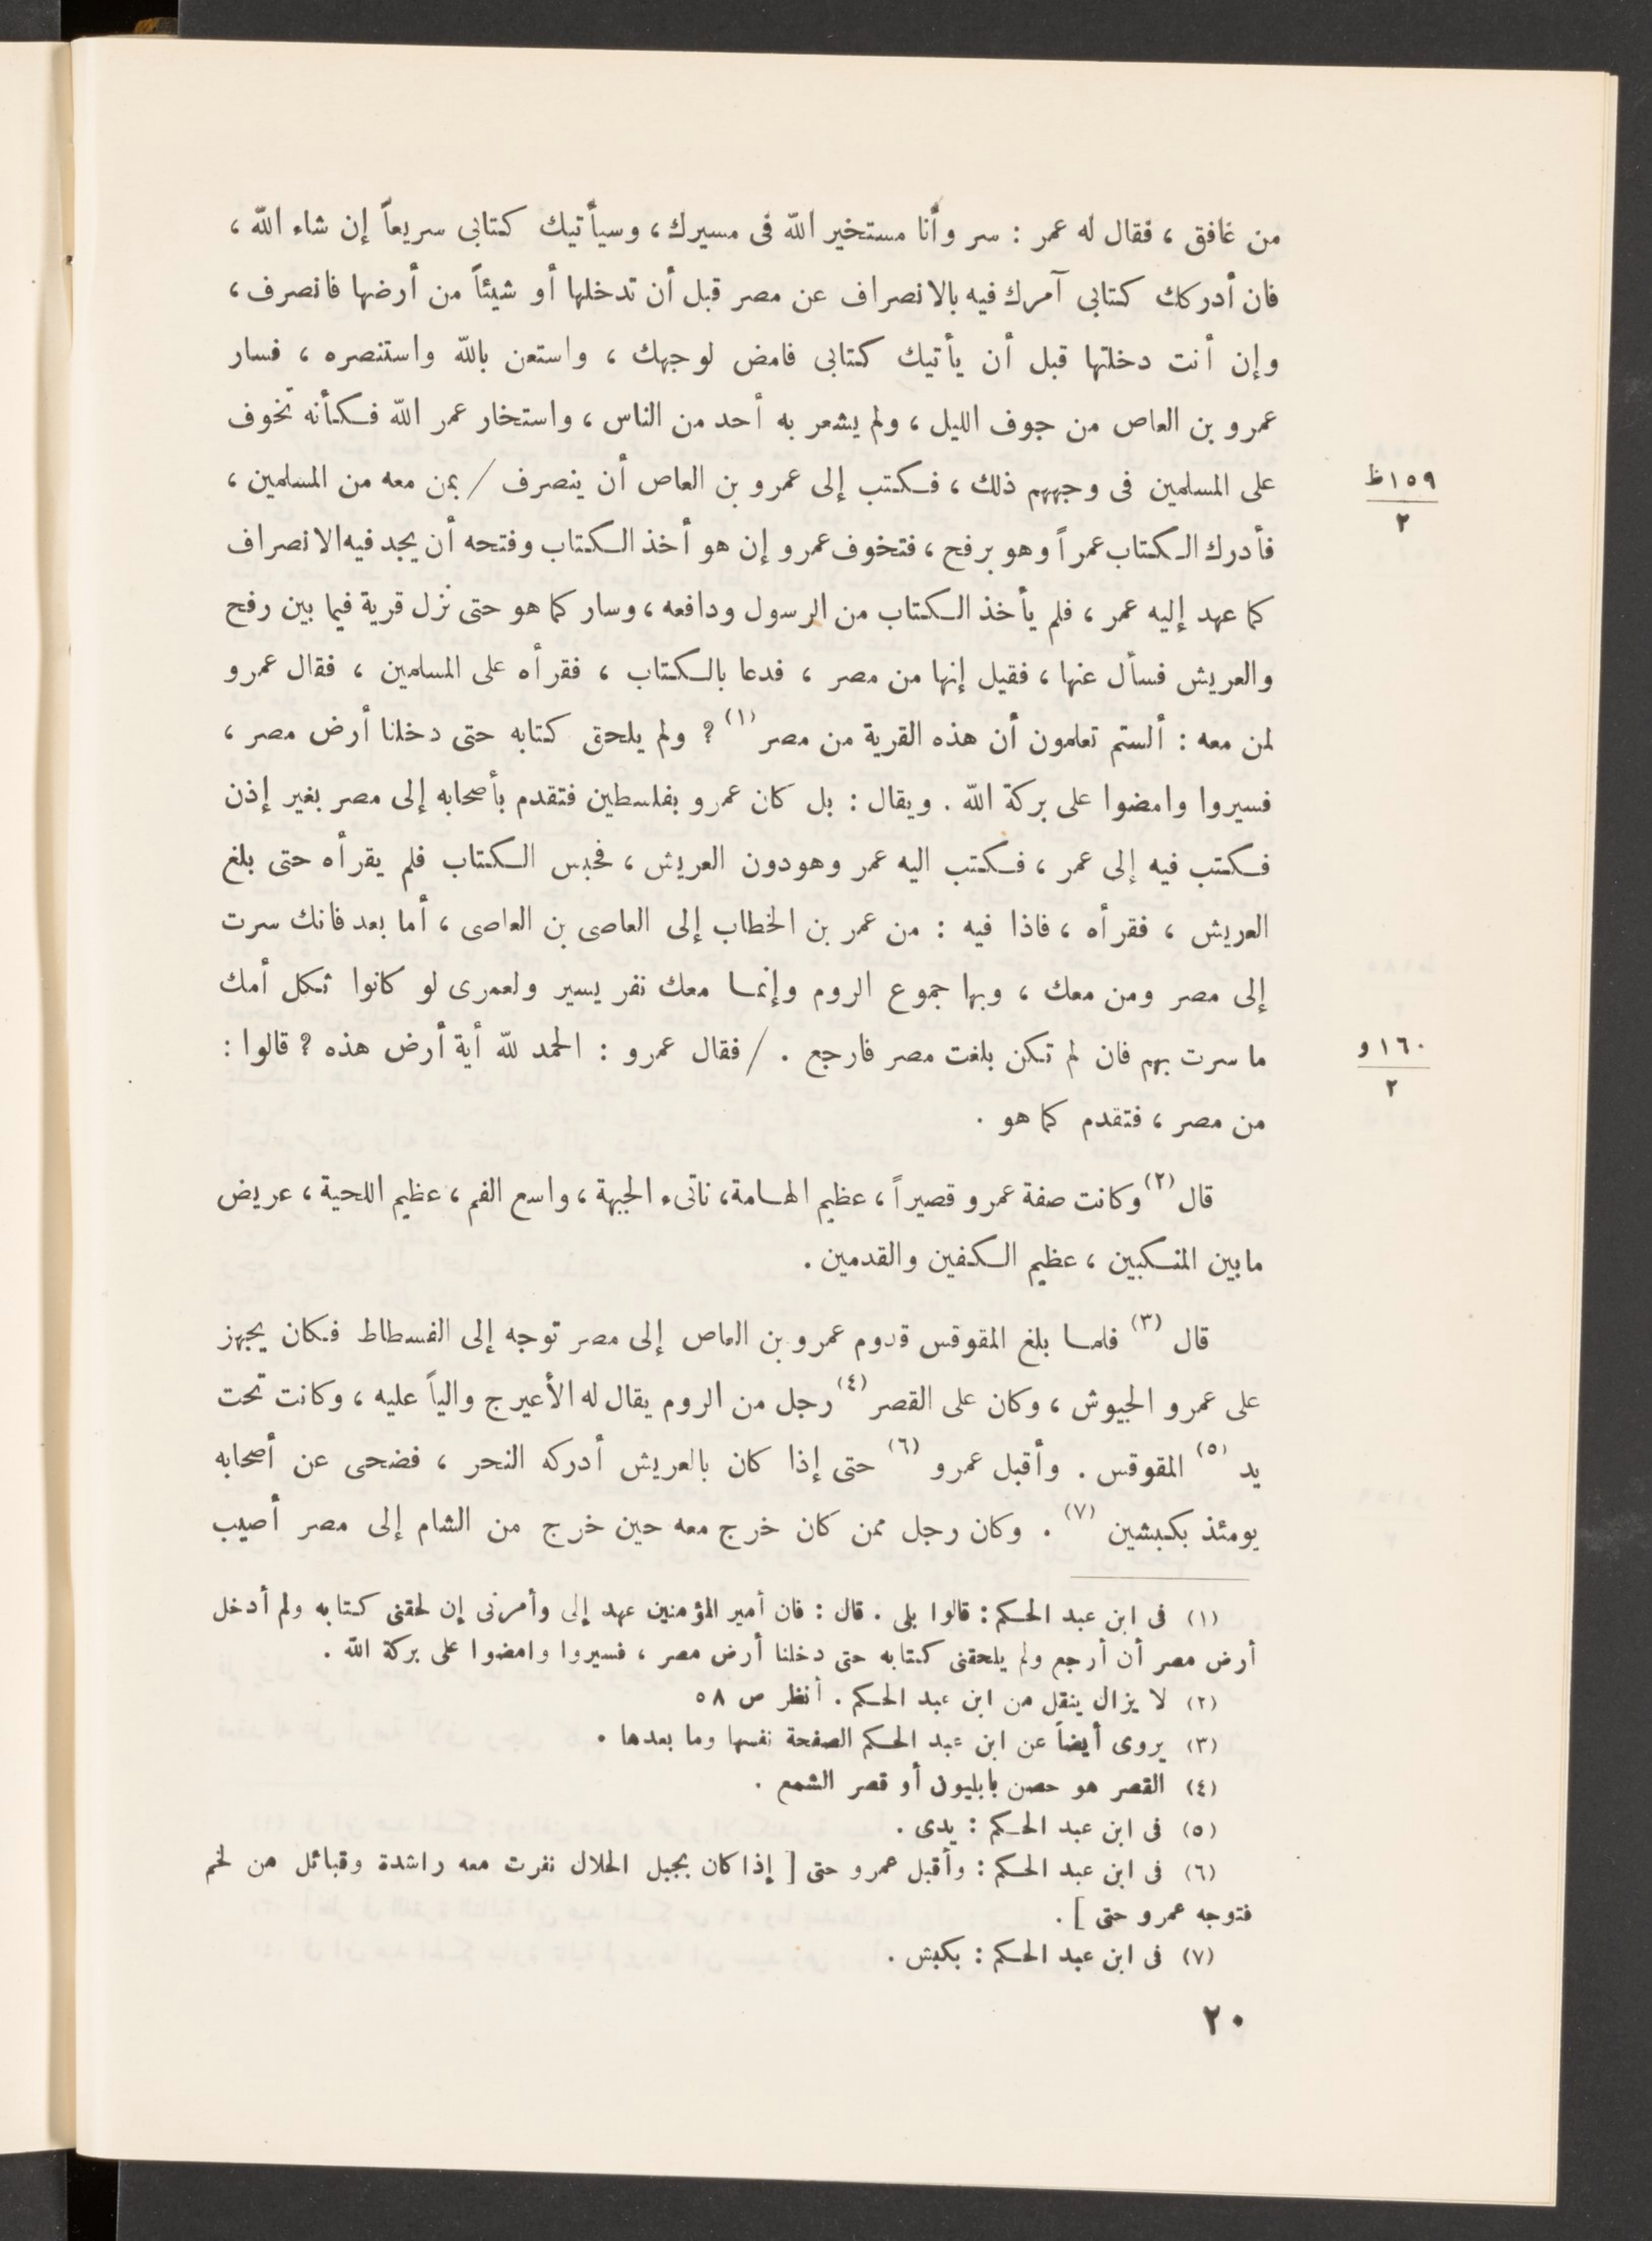 من غافق ، فقال له عمر : سر وأنا مستخير الله فى مسيرك ، وسيأتيك كتابى سريعاً إن شاء الله ،
فان أدركك كتابى آمرك فيه بالانصراف عن مصر قبل أن تدخلها أو شيئاً من أرضها فانصرف ،
وإن أنت دخلتها قبل أن يأتيك كتابى فامض لوجهك ، واستعن بالله واستنصره ، فسار
عمرو بن العاص من جوف الليل ، ولم يشعر به أحد من الناس ، واستخار عمر الله فكأنه تخوف
على المسلمين فى وجههم ذلك ، فكتب إلى عمرو بن العاص أن ينصرف / بمن معه من المسلمين ،
١٥٩ظ
٢
فأدرك الكتاب عمراً وهو برفح ، فتخوف عمرو إن هو أخذ الكتاب وفتحه أن يجد فيه الانصراف
كما عهد إليه عمر ، فلم يأخذ الكتاب من الرسول ودافعه ، وسار كما هو حتى نزل قرية فيما بين رفح
والعريش فسأل عنها ، فقيل إنها من مصر ، فدعا بالكتاب ، فقرأه على المسلمين ، فقال عمرو
لمن معه : ألستم تعلمون أن هذه القرية من مصر (١) ؟ ولم يلحق كتابه حتى دخلنا أرض مصر ،
فسيروا وامضوا على بركة الله . ويقال : بل كان عمرو بفلسطين فتقدم بأصحابه إلى مصر بغير إذن
فكتب فيه إلى عمر ، فكتب اليه عمر وهودون العريش ، فحبس الكتاب فلم يقرأه حتى بلغ
العريش ، فقرأه ، فاذا فيه : من عمر بن الخطاب إلى العاصى بن العاصى ، أما بعد فانك سرت
إلى مصر ومن معك ، وبها جموع الروم وإنما معك نفر يسير ولعمرى لو كانوا ثكل أمك
ما سرت بهم فان لم تكن بلغت مصر فارجع . / فقال عمرو : الحمد لله أية أرض هذه ؟ قالوا :
١٦٠و
٢
من مصر ، فتقدم كما هو .
قال (٢) وكانت صفة عمرو قصيراً ، عظيم الهامة ، ناتىء الجبهة ، واسع الفم ، عظيم اللحية ، عريض
مابين المنكبين ، عظيم الكفين والقدمين .
قال (٣) فلما بلغ المقوقس قدوم عمرو بن العاص إلى مصر توجه إلى الفسطاط فكان يجهز
على عمرو الجيوش ، وكان على القصر (٤) رجل من الروم يقال له الأعيرج والياً عليه ، وكانت تحت
يد (٥) المقوقس . وأقبل عمرو (٦) حتى إذا كان بالعريش أدركه النحر ، فضحى عن أصحابه
يومئذ بكبشين (٧) . وكان رجل ممن كان خرج معه حين خرج من الشام إلى مصر أصيب
(١) فى ابن عبد الحكم : قالوا بلى . قال : فان أمير المؤمنين عهد إلى وأمرنى إن لحقنى كتابه ولم أدخل
أرض مصر أن أرجع ولم يلحقنى كتابه حتى دخلنا أرض مصر ، فسيروا وامضوا على بركة الله .
(٢) لا يزال ينقل من ابن عبد الحكم . أنظر ص ٥٨
(٣) يروى أيضاً عن ابن عبد الحكم الصفحة نفسها وما بعدها .
(٤) القصر هو حصن بابليون أو قصر الشمع .
(٥) فى ابن عبد الحكم : يدى .
(٦) فى ابن عبد الحكم : وأقبل عمرو حتى [ إذا كان بجبل الحلال نفرت معه راشدة وقبائل من لخم
فتوجه عمرو حتى ] .
(٧) فى ابن عبد الحكم : بكبش .
٢٠